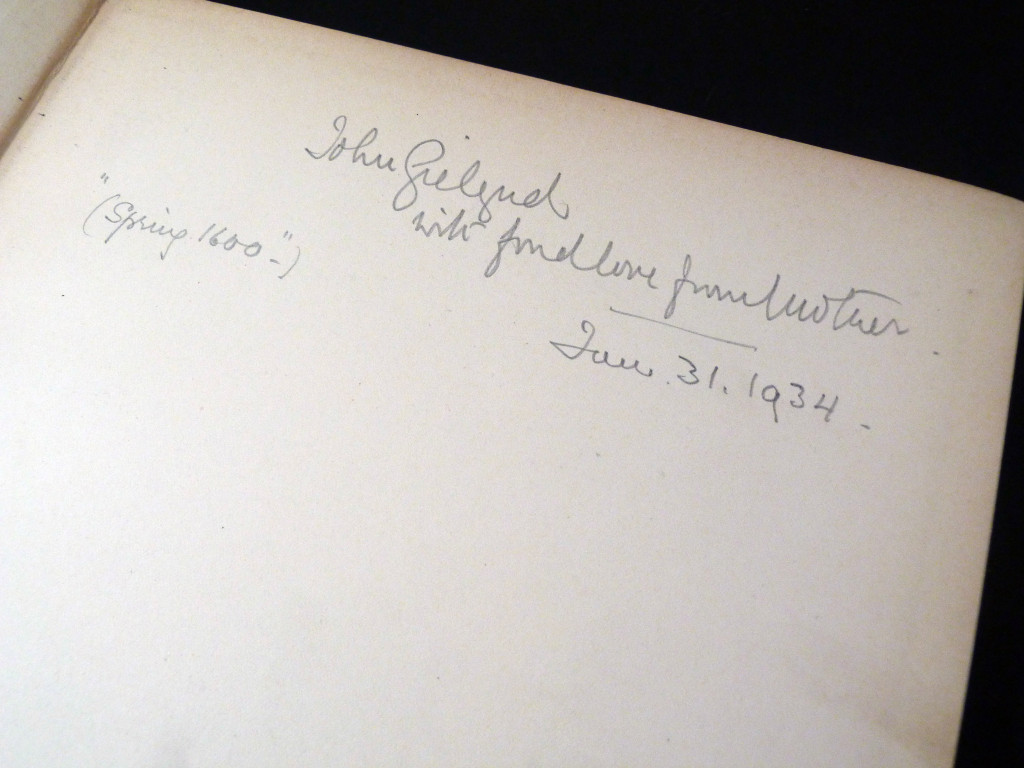 John Gielgud
with fond love from Mother.
("Spring 1600"-)
Jan. 31. 1934-